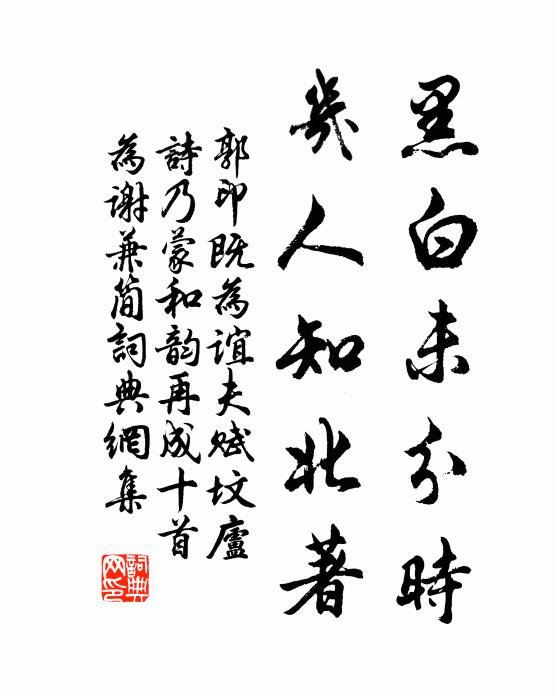 黑白未分時
幾人知此著
郭印既為誼夫賦墳廬
詩乃蒙和韵再成十首
為謝兼簡詞典網集
詞典
网印